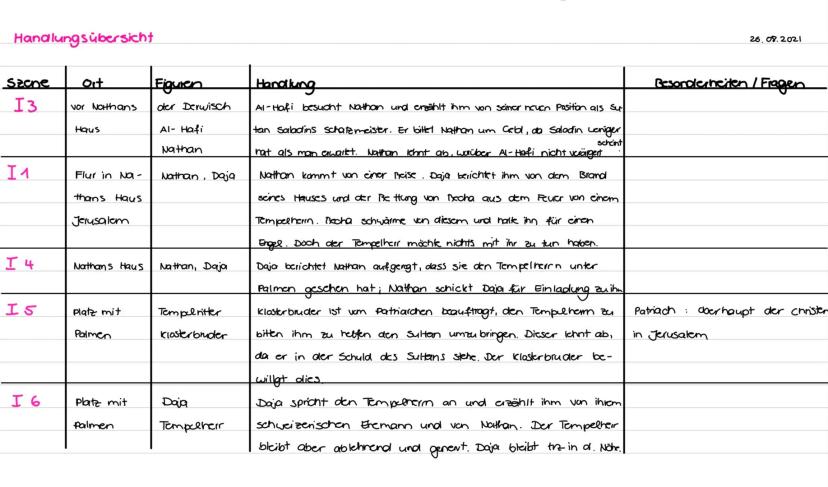 Handlungsübersicht 26.08.2021
Szene Ort Figuren Handlung Besonderheiten / Fragen
I 3 vor Nathans der Derwisch Al-Hafi besucht Nathan und erzählt ihm von seiner neuen Position als Sul-
Haus Al-Hafi tan Saladins Schatzmeister. Er bittet Nathan um Geld, da Saladin weniger
Nathan hat als man erwartet. Nathan lehnt ab, worüber Al-Hafi nicht verärgert scheint
I 1 Flur in Na- Nathan, Daja Nathan kommt von einer Reise. Daja berichtet ihm von dem Brand
thans Haus seines Hauses und der Rettung von Recha aus dem Feuer von einem
Jerusalem Tempelherrn. Recha schwärme von diesem und halte ihn für einen
Engel. Doch der Tempelherr möchte nichts mit ihr zu tun haben.
I 4 Nathans Haus Nathan, Daja Daja berichtet Nathan aufgeregt, dass sie den Tempelherrn unter
Palmen gesehen hat; Nathan schickt Daja für Einladung zu ihm
I 5 Platz mit Tempelritter Klosterbruder ist vom Patriarchen beauftragt, den Tempelherrn zu Patriach : Oberhaupt der Christen
Palmen Klosterbruder bitten ihm zu helfen den Sultan umzubringen. Dieser lehnt ab, in Jerusalem
da er in der Schuld des Sultans stehe. Der Klosterbruder be-
willgt dies.
I 6 Platz mit Daja Daja spricht den Tempelherrn an und erzählt ihm von ihrem
Palmen Tempelherr schweizerischen Ehemann und von Nathan. Der Tempelherr
bleibt aber ablehnend und genervt. Daja bleibt in d. Nähe.